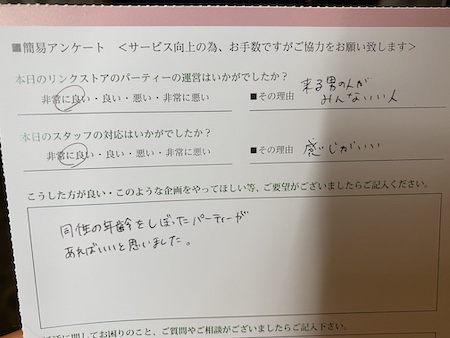 ■簡易アンケート ＜サービス向上の為、お手数ですがご協力をお願い致します＞
本日のリンクストアのパーティーの運営はいかがでしたか？
非常に良い・良い・悪い・非常に悪い ■その理由 来る男の人が
みんないい人
本日のスタッフの対応はいかがでしたか？
非常に良い・良い・悪い・非常に悪い ■その理由 感じがいい
こうした方が良い・このような企画をやってほしい等、ご要望がございましたらご記入ください。
同性の年齢をしぼったパーティーが
あればいいと思いました。
に関してお困りのこと、ご質問やご相談がございましたらご記入下さい。